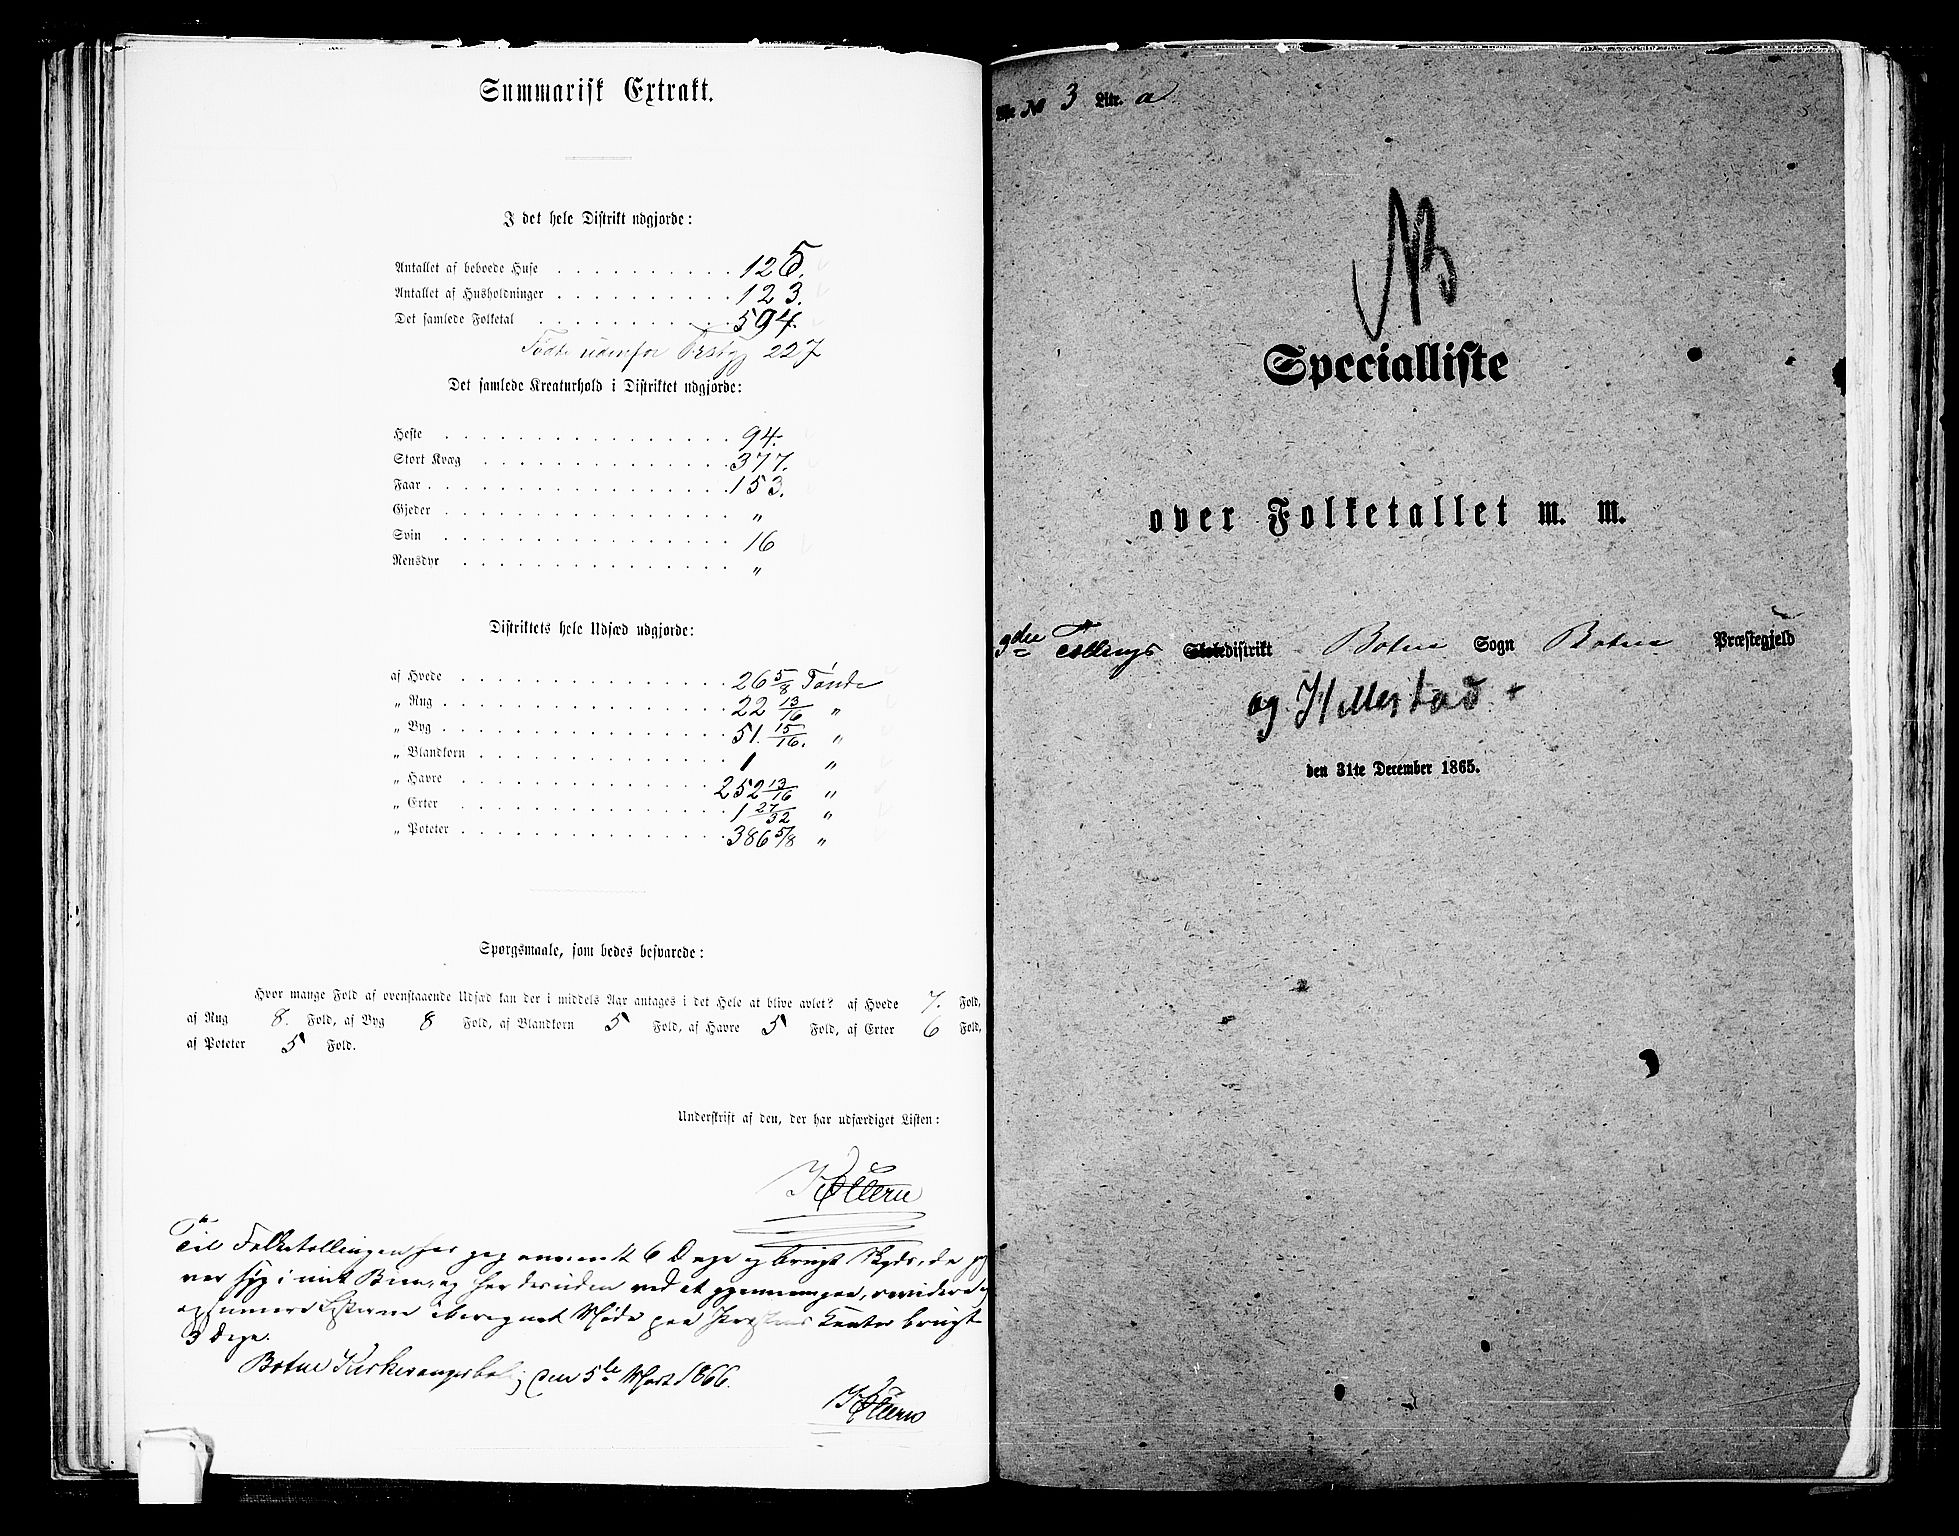 Summarisk Extrakt.
I det hele Distrikt udgjorde:
Antallet af beboede Huse . . . 125.
Antallet af Husholdninger . . . 123.
Det samlede Folketal . . . 594.
Fødte udenfor Præstgj 227
Det samlede Kreaturhold i Distriktet udgjorde:
Heste . . . 94.
Stort Kvæg . . . 377.
Faar . . . 153.
Gjeder . . . "
Svin . . . 16
Rensdyr . . . "
Distriktets hele Udsæd udgjorde:
af Hvede . . . 26 5/8 Tønde
" Rug . . . 22 13/16 "
" Byg . . . 51. 15/16. "
" Blandkorn . . . 1 "
" Havre . . . 252 13/16 "
" Erter . . . 1 27/32 "
" Poteter . . . 386 5/8 "
Spørgsmaale, som bedes besvarede:
Hvor mange Fold af ovenstaaende Udsæd kan der i middels Aar antages i det Hele at blive avlet? af Hvede 7. Fold,
af Rug 8. Fold, af Byg 8 Fold, af Blandkorn 5 Fold, af Havre 5 Fold, af Erter 6 Fold,
af Poteter 5 Fold.
Underskrift af den, der har udfærdiget Listen:
Til Folketellingen har jeg anvendt 6 Dage og brugt Skyds, da jeg
var syg i mit Been, og har desuden ved at gjennemgaa, revidere
og summere Listerne iberegnet Møde paa Præstens Contor brugt
3 Dage.
Botne Kirkesangerbolig den 5te Marts 1866.
No 3 Litr. a
NB
Specialliste
over Folketallet m. m.
3die Tællings Skoledistrikt Botne Sogn Botne Præstegjeld
og Hillestad +
den 31te December 1865.